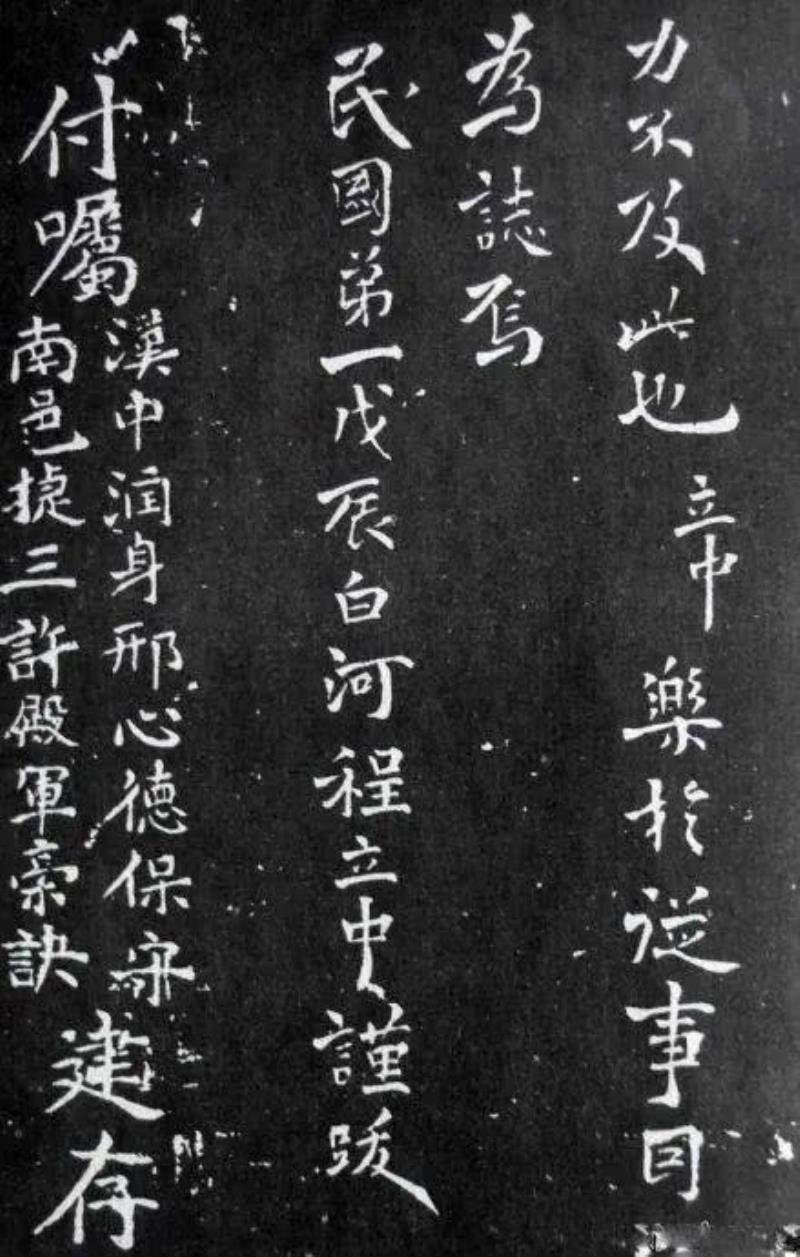 力不及此也立中樂於從事囙
為誌焉
民國苐一戊辰白河程立中謹跋
付囑
漢中润身邢心德保守
南邑捷三許殿軍訣
建存